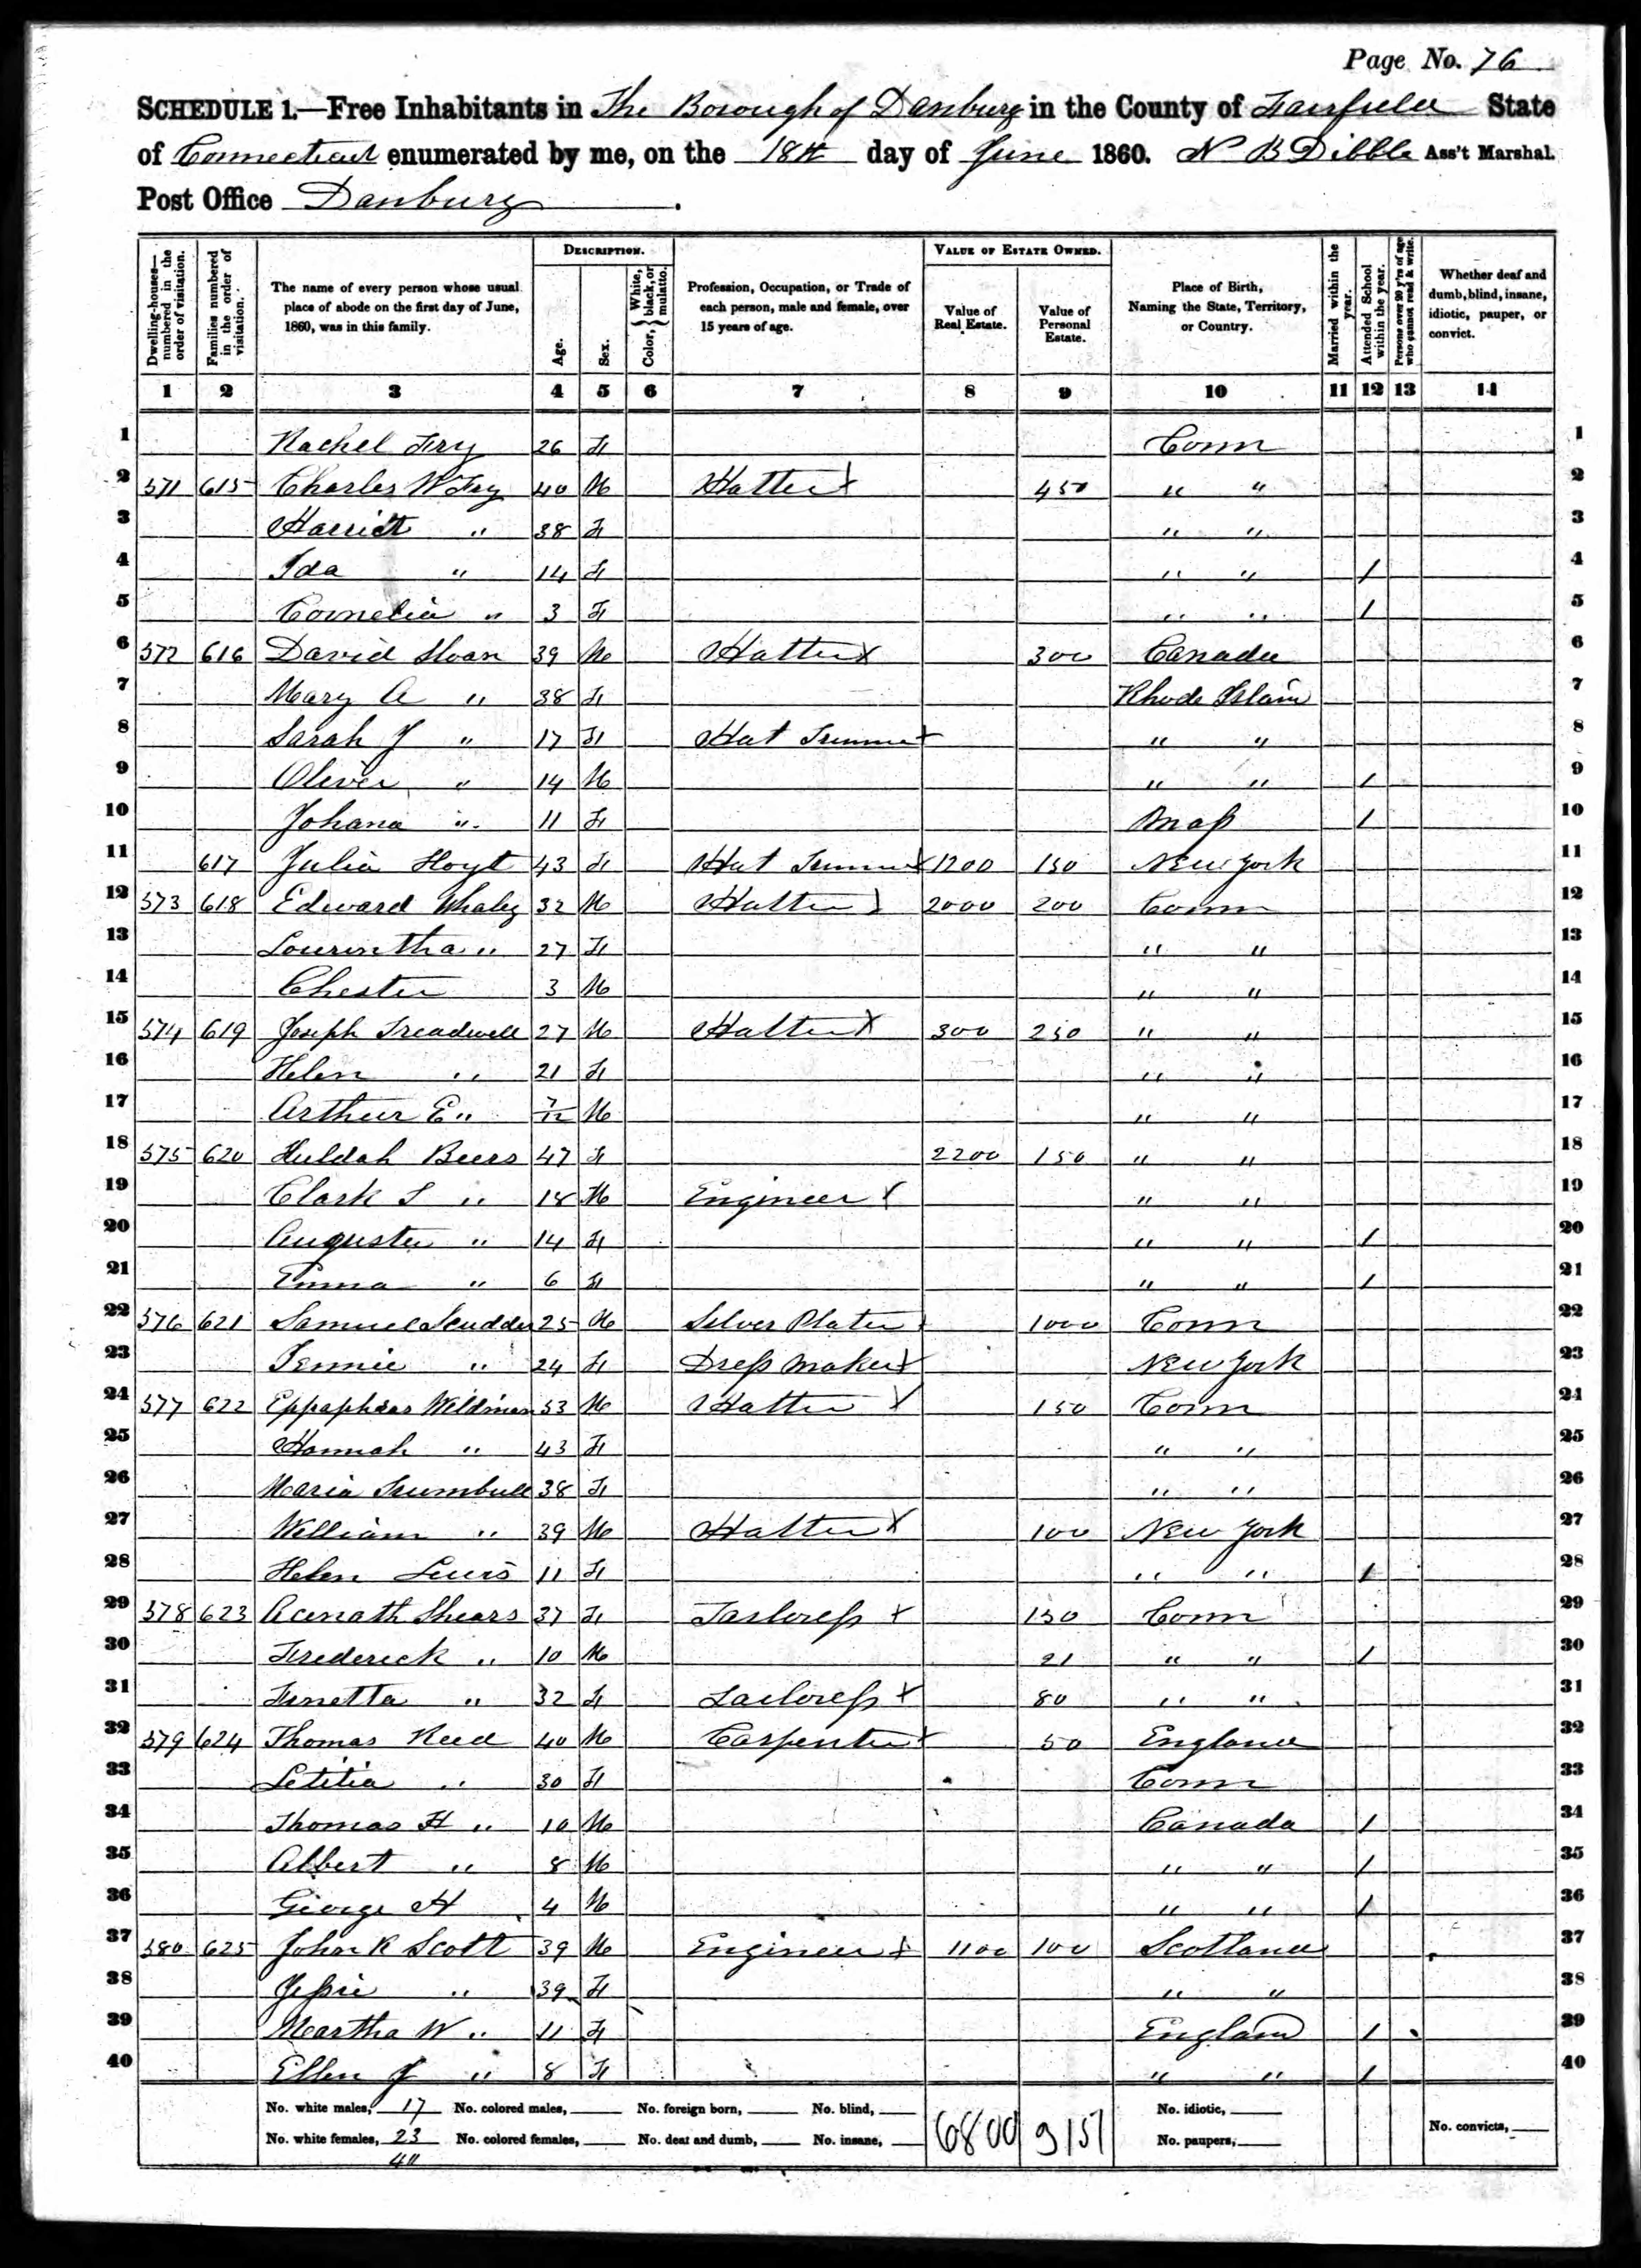 Page No. 76
SCHEDULE 1.—Free Inhabitants in The Borough of Danbury in the County of Fairfield State
of Connecticut enumerated by me, on the 18th day of June 1860. N B Dibble Ass't Marshal.
Post Office Danbury.
Dwelling-houses—numbered in the order of visitation.
Families numbered in the order of visitation.
The name of every person whose usual place of abode on the first day of June, 1860, was in this family.
DESCRIPTION.
Age.
Sex.
Color, { White, black, or mulatto.
Profession, Occupation, or Trade of each person, male and female, over 15 years of age.
VALUE OF ESTATE OWNED.
Value of Real Estate.
Value of Personal Estate.
Place of Birth, Naming the State, Territory, or Country.
Married within the year.
Attended School within the year.
Persons over 20 y'rs of age who cannot read & write.
Whether deaf and dumb, blind, insane, idiotic, pauper, or convict.
1 2 3 4 5 6 7 8 9 10 11 12 13 14
1 Rachel Fry 26 F Conn 1
2 571 615 Charles W Fry 40 M Hatter X 450 " " 2
3 Harriet " 38 F " " 3
4 Ida " 14 F " " / 4
5 Cornelia " 3 F " " / 5
6 572 616 David Sloan 39 M Hatter X 300 Canada 6
7 Mary A " 38 F Rhode Island 7
8 Sarah J " 17 F Hat Trimmer X " " 8
9 Oliver " 14 M " " / 9
10 Johana " 11 F Mass / 10
11 617 Julia Hoyt 43 F Hat Trimmer X 1200 150 New York 11
12 573 618 Edward Whaley 32 M Hatter X 2000 200 Conn 12
13 Lourintha " 27 F " " 13
14 Chester 3 M " " 14
15 574 619 Joseph Treadwell 27 M Hatter X 300 250 " " 15
16 Helen " 21 F " " 16
17 Arthur E " 7/12 M " " 17
18 575 620 Huldah Beers 47 F 2200 150 " " 18
19 Clark S " 18 M Engineer X " " 19
20 Augusta " 14 F " " / 20
21 Emma " 6 F " " / 21
22 576 621 Samuel Scudder 25 M Silver Plater X 1000 Conn 22
23 Jennie " 24 F Dress Maker X New York 23
24 577 622 Eppaphras Wildman 53 M Hatter X 150 Conn 24
25 Hannah " 43 F " " 25
26 Maria Trumbull 38 F " " 26
27 William " 39 M Hatter X 100 New York 27
28 Helen Lewis 11 F " " / 28
29 578 623 Acenath Shears 37 F Tailoress X 150 Conn 29
30 Frederick " 10 M 21 " " / 30
31 " 32 F Tailoress X 80 " " 31
32 579 624 Thomas Reed 40 M Carpenter X 50 England 32
33 Letitia " 30 F Conn 33
34 Thomas H " 10 M Canada / 34
35 Albert " 8 M " " / 35
36 George H 4 M " " / 36
37 580 625 John R Scott 39 M Engineer X 1100 100 Scotland 37
38 Jessie " 39 F " " 38
39 Martha W " 11 F England / 39
40 Ellen J " 8 F " " / 40
No. white males, 17 No. colored males, No. foreign born, No. blind, 6800 3151 No. idiotic,
No. white females, 23 No. colored females, No. deaf and dumb, No. insane, No. paupers, No. convicts,
40